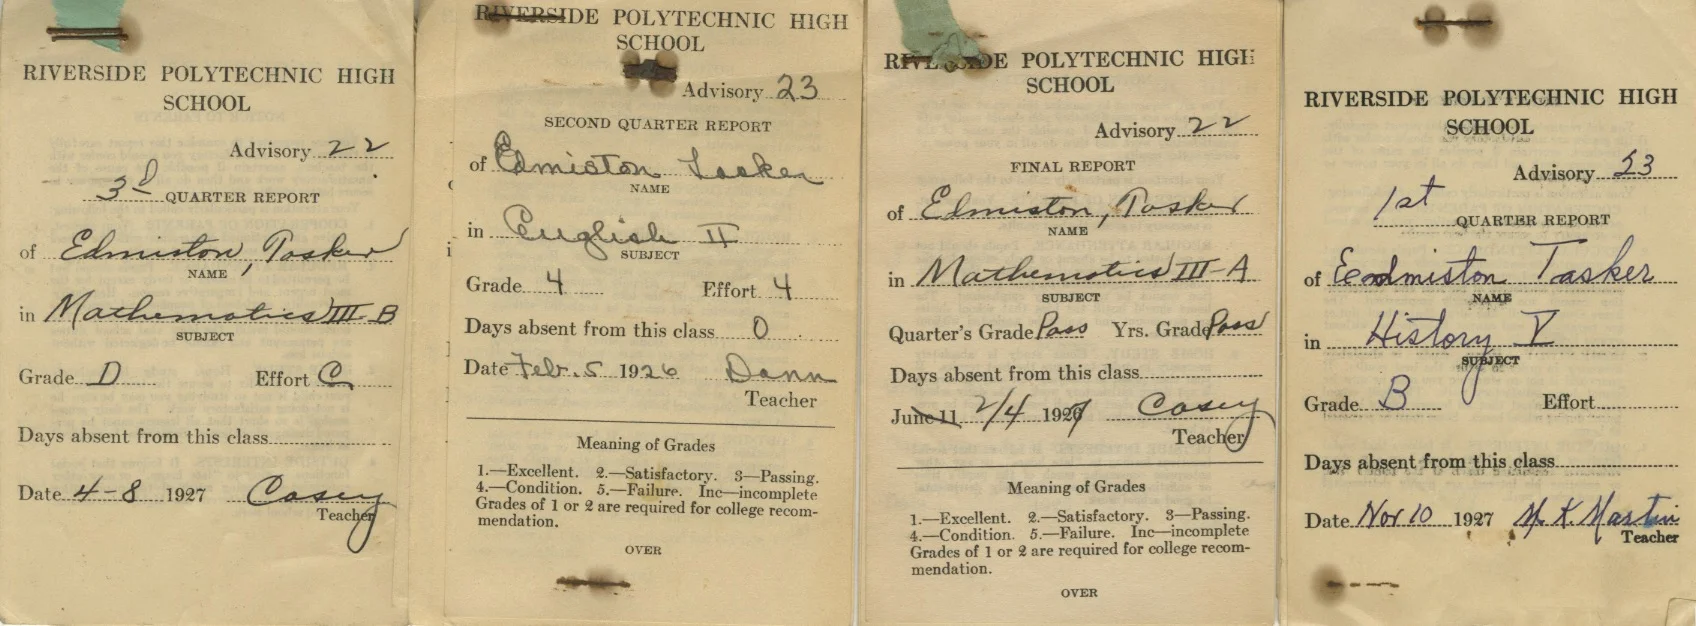 RIVERSIDE POLYTECHNIC HIGH
SCHOOL
Advisory 22
3d QUARTER REPORT
of Edmiston, Tasker
NAME
in Mathematics III-B
SUBJECT
Grade D Effort C
Days absent from this class
Date 4-8 1927 Casey
Teacher
RIVERSIDE POLYTECHNIC HIGH
SCHOOL
Advisory 23
SECOND QUARTER REPORT
of Edmiston Tasker
NAME
in English II
SUBJECT
Grade 4 Effort 4
Days absent from this class 0
Date Febr. 5 1926 Dann
Teacher
Meaning of Grades
1.—Excellent. 2.—Satisfactory. 3—Passing.
4.—Condition. 5.—Failure. Inc—incomplete
Grades of 1 or 2 are required for college recom-
mendation.
OVER
RIVERSIDE POLYTECHNIC HIGH
SCHOOL
Advisory 22
FINAL REPORT
of Edmiston, Tasker
NAME
in Mathematics III-A
SUBJECT
Quarter's Grade Pass Yrs. Grade Pass
Days absent from this class
June 11 2/4 1927 Casey
Teacher
Meaning of Grades
1.—Excellent. 2.—Satisfactory. 3—Passing.
4.—Condition. 5.—Failure. Inc—incomplete
Grades of 1 or 2 are required for college recom-
mendation.
OVER
RIVERSIDE POLYTECHNIC HIGH
SCHOOL
Advisory 23
1st QUARTER REPORT
of Edmiston Tasker
NAME
in History V
SUBJECT
Grade B Effort
Days absent from this class
Date Nov 10 1927 M. K. Martin
Teacher